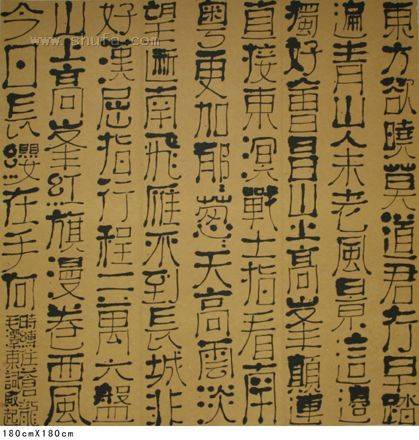 東方欲曉莫道君行早踏
遍青山人未老風景這邊
獨好會昌山上高峯顛連
直接東溟戰士指看南
粵更加郁葱天高雲淡
望斷南飛雁不到長城非
好漢屈指行程二萬六盤
山上高峯紅旗漫卷西風
今日長纓在手何
時縛住蒼龍
毛澤東詞
180cmX180cm